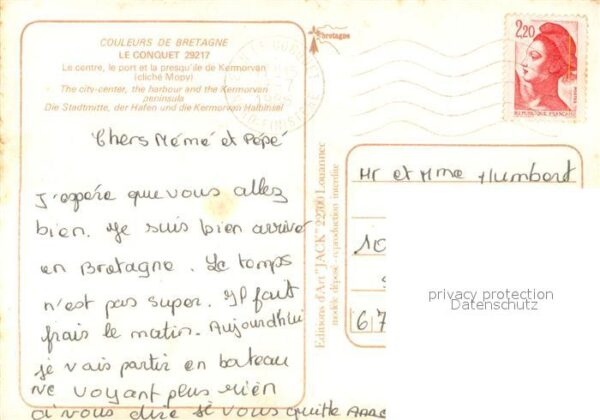 COULEURS DE BRETAGNE
LE CONQUET 29217
Le centre, le port et la presqu'ile de Kermorvan
(cliché Mopy)
The city-center, the harbour and the Kermorvan
peninsula
Die Stadtmitte, der Hafen und die Kermorvan Halbinsel
bretagne
2,20
REPUBLIQUE FRANÇAISE
Chers Mémé et Pépé
J'espère que vous allez
bien. Je suis bien arrivé
en Bretagne. Le temps
n'est pas super. Il fait
frais le matin. Aujourd'hui
je vais partir en bateau
Ne voyant plus rien
à vous dire je vous quitte
Editions d'Art "JACK" 22700 Louannec
modèle déposé - reproduction interdite
Mr et Mme Humbert
10
67
privacy protection
Datenschutz